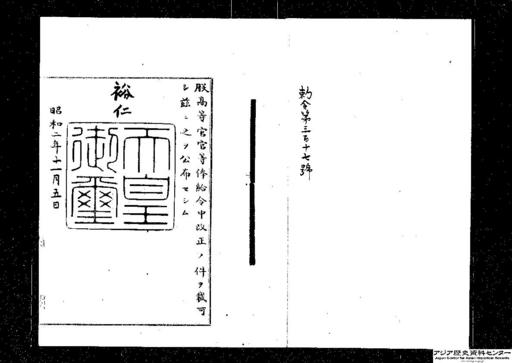 勅令第三百十七號
朕高等官官等俸給令中改正ノ件ヲ裁可
シ茲ニ之ヲ公布セシム
裕仁
天皇御璽
昭和二年十一月五日
アジア歴史資料センター
Japan Center for Asian Historical Records